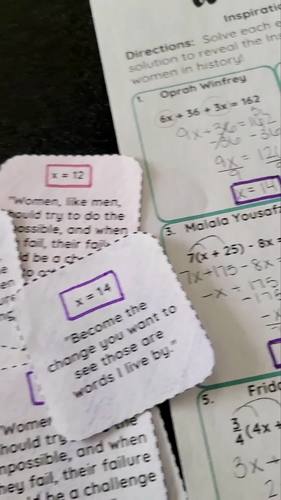 Inspiratio
Directions: Solve each e
solution to reveal the ins
women in history!
1. Oprah Winfrey
6x + 36 + 3x = 162
9x + 36 = 162
-36 -36
9x = 126
9
x = 14
x = 12
"Women, like men,
hould try to do the
possible, and when
fail, their fail
d be a ch
x = 14
"Become the
change you want to
see those are
words I live by."
3. Malala Yousafz
7(x + 25) - 8x =
7x + 175 - 8x =
-x + 175
-175
-x
5. Frida
3/4(4x +
3x +
"Women
hould try
mpossible, and when
hey fail, their failure
d be a challenge